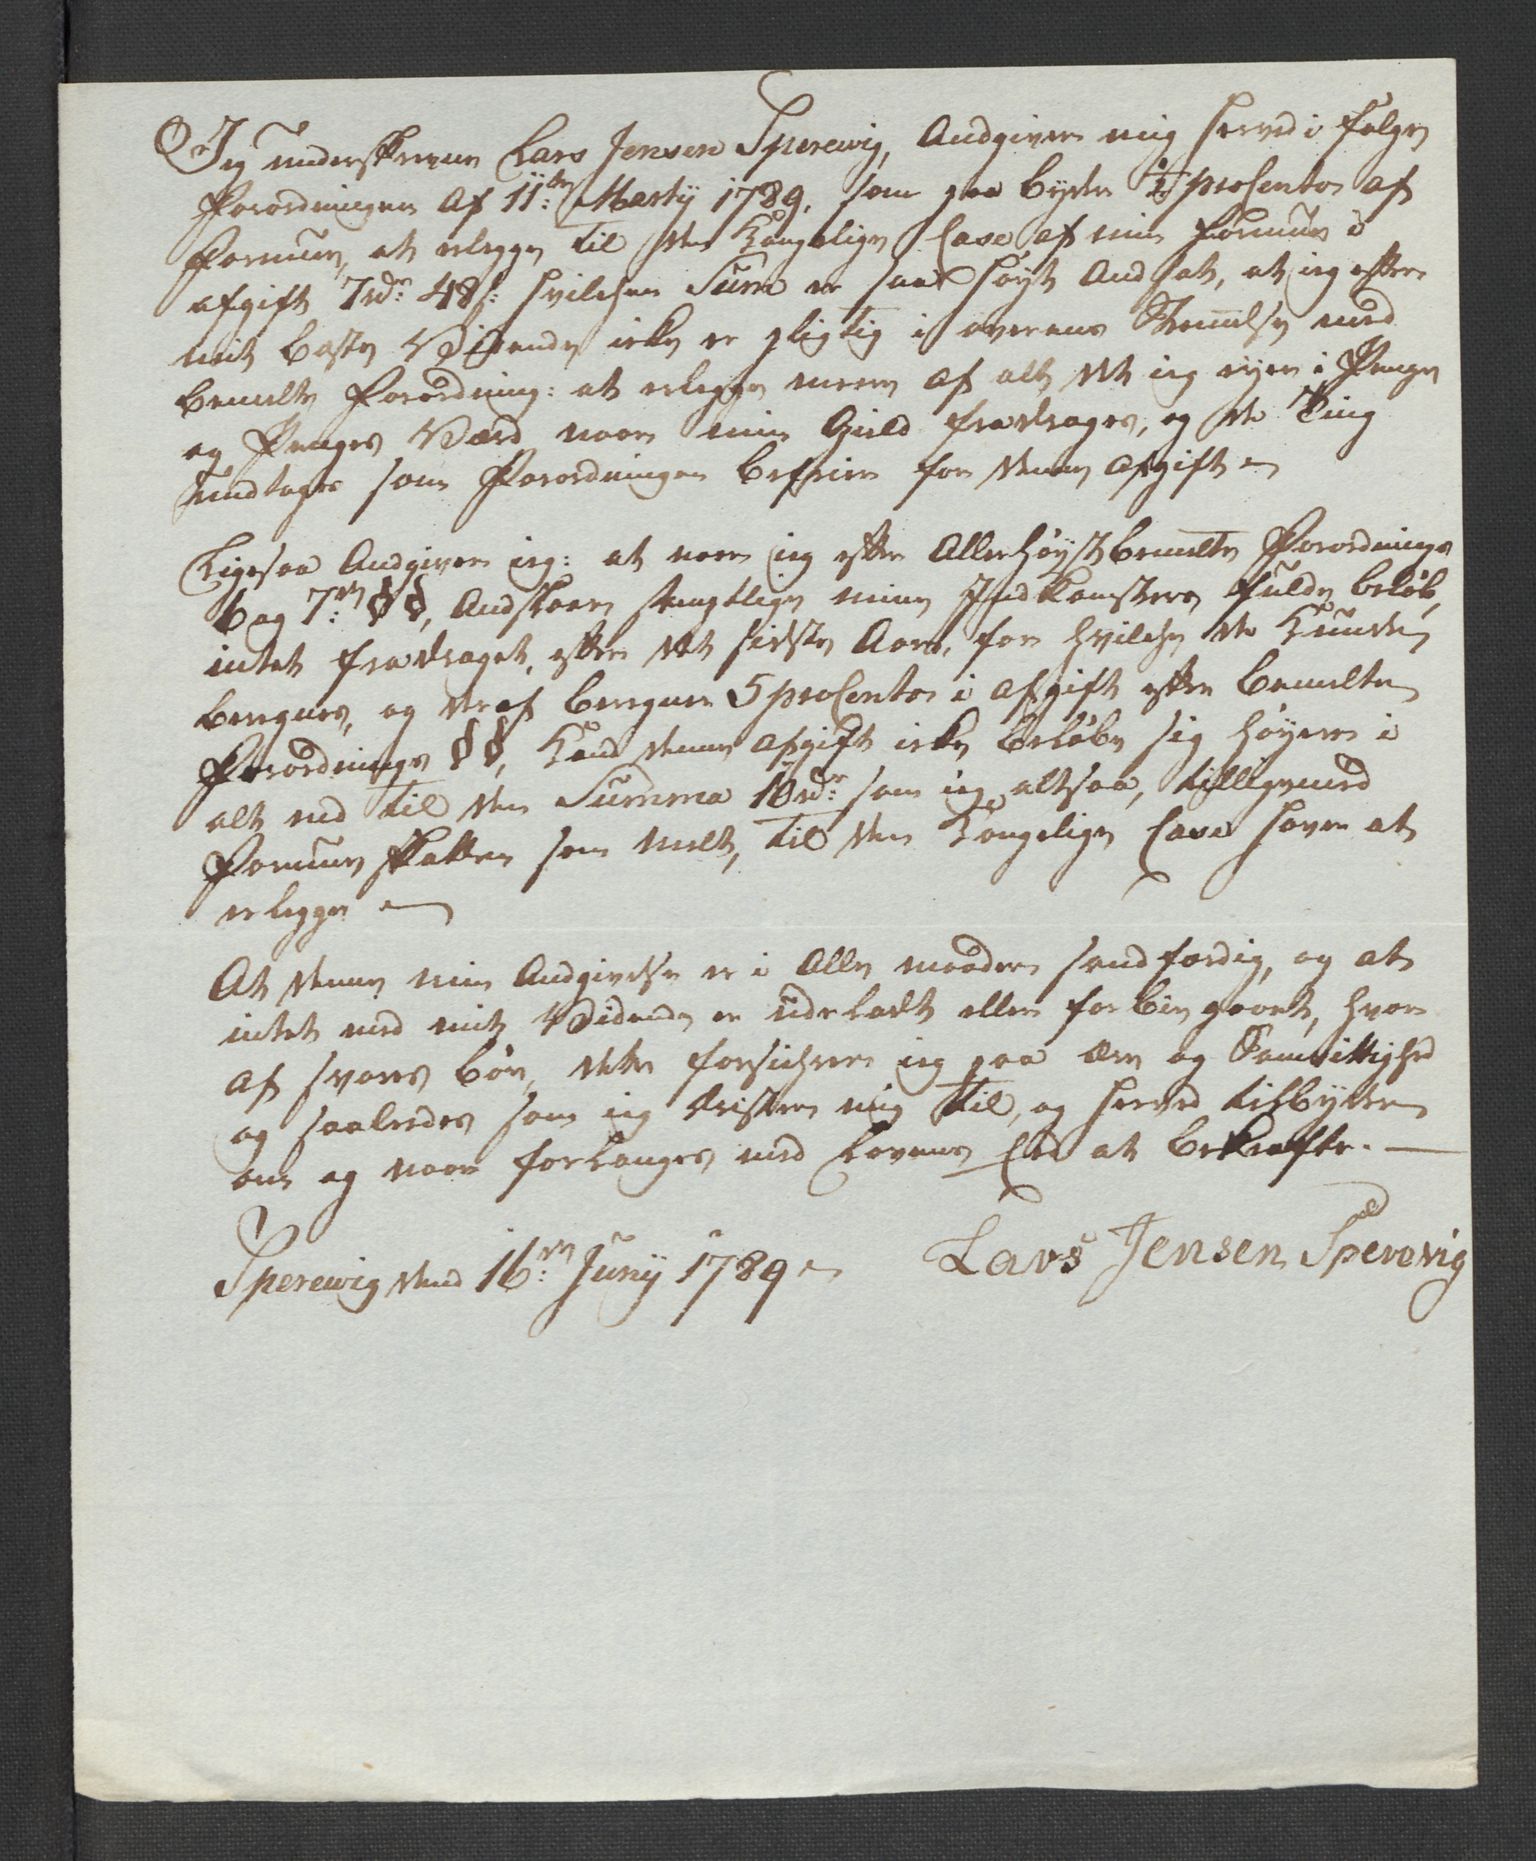 Jeg underskrevne Lars Jensen Sperewig, Andgiver mig herved i følge
Forordningen af 11te Martij 1789, som paa byder ½ proCento af
Formue, at erlegge til den Kongelige Casse af min Formue i
afgift 7 rdr 48 s: hvilchen Sum er saa høyt Andsat, at ieg efter
mit beste Vidende icke er pligtig i overeens Stemmelse med
bemelte Forordning: at erlegge meere af alt det ieg eyer i Penge
og Penges Værd naar min Gield fradrages, og de Ting
undtages som Forordningen befrier for denne afgift
Ligesaa Andgiver ieg: at naar ieg efter Allerhøystbemelte Forordnings
6 og 7de §§, Andslaaer samtlige mine Indkomsters fulde beløb,
intet fradraget, efter det sidste Aar, for hvilchen de Kunde
beregnes, og deraf beregner 5 proCento i afgift efter bemelte
Forordnings §§, Kand denne afgift icke beløbe sig høyere i
alt end til den Summa 10 rdr som ieg altsaa, tilligemed
Formue skatten som melt, til den Kongelige Casse haver at
erlegge
At denne min Andgivelse er i Alle maader sandfærdig, og at
intet med mit Vidende er udeladt eller forbiegaaet, hvor
af svares bør, dette forsichrer ieg paa ære og Samvittighed
og saaledes som ieg trøster mig til, og herved tilbyder
om og naar forlanges med Lovens Eed at bekræfte.
Sperewig dend 16de Junij 1789
Lars Jensen Sperevig